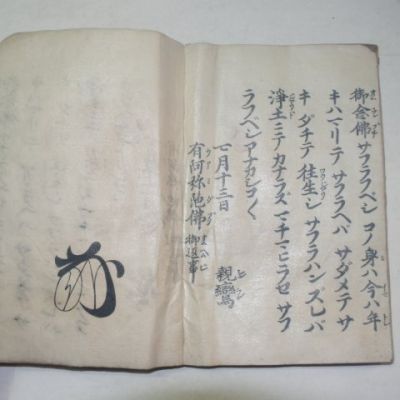 御念佛サフラフベシ コノ身ハ今ハ年
キハマリテ サフラヘバ サダメテサ
キダチテ 往生シ サフラハンズレバ
淨土ニテ カナラズ マチマヒラセ サフ
ラフベシ アナカシコ〱
七月十三日
親鸞
有阿弥陀佛 御返事